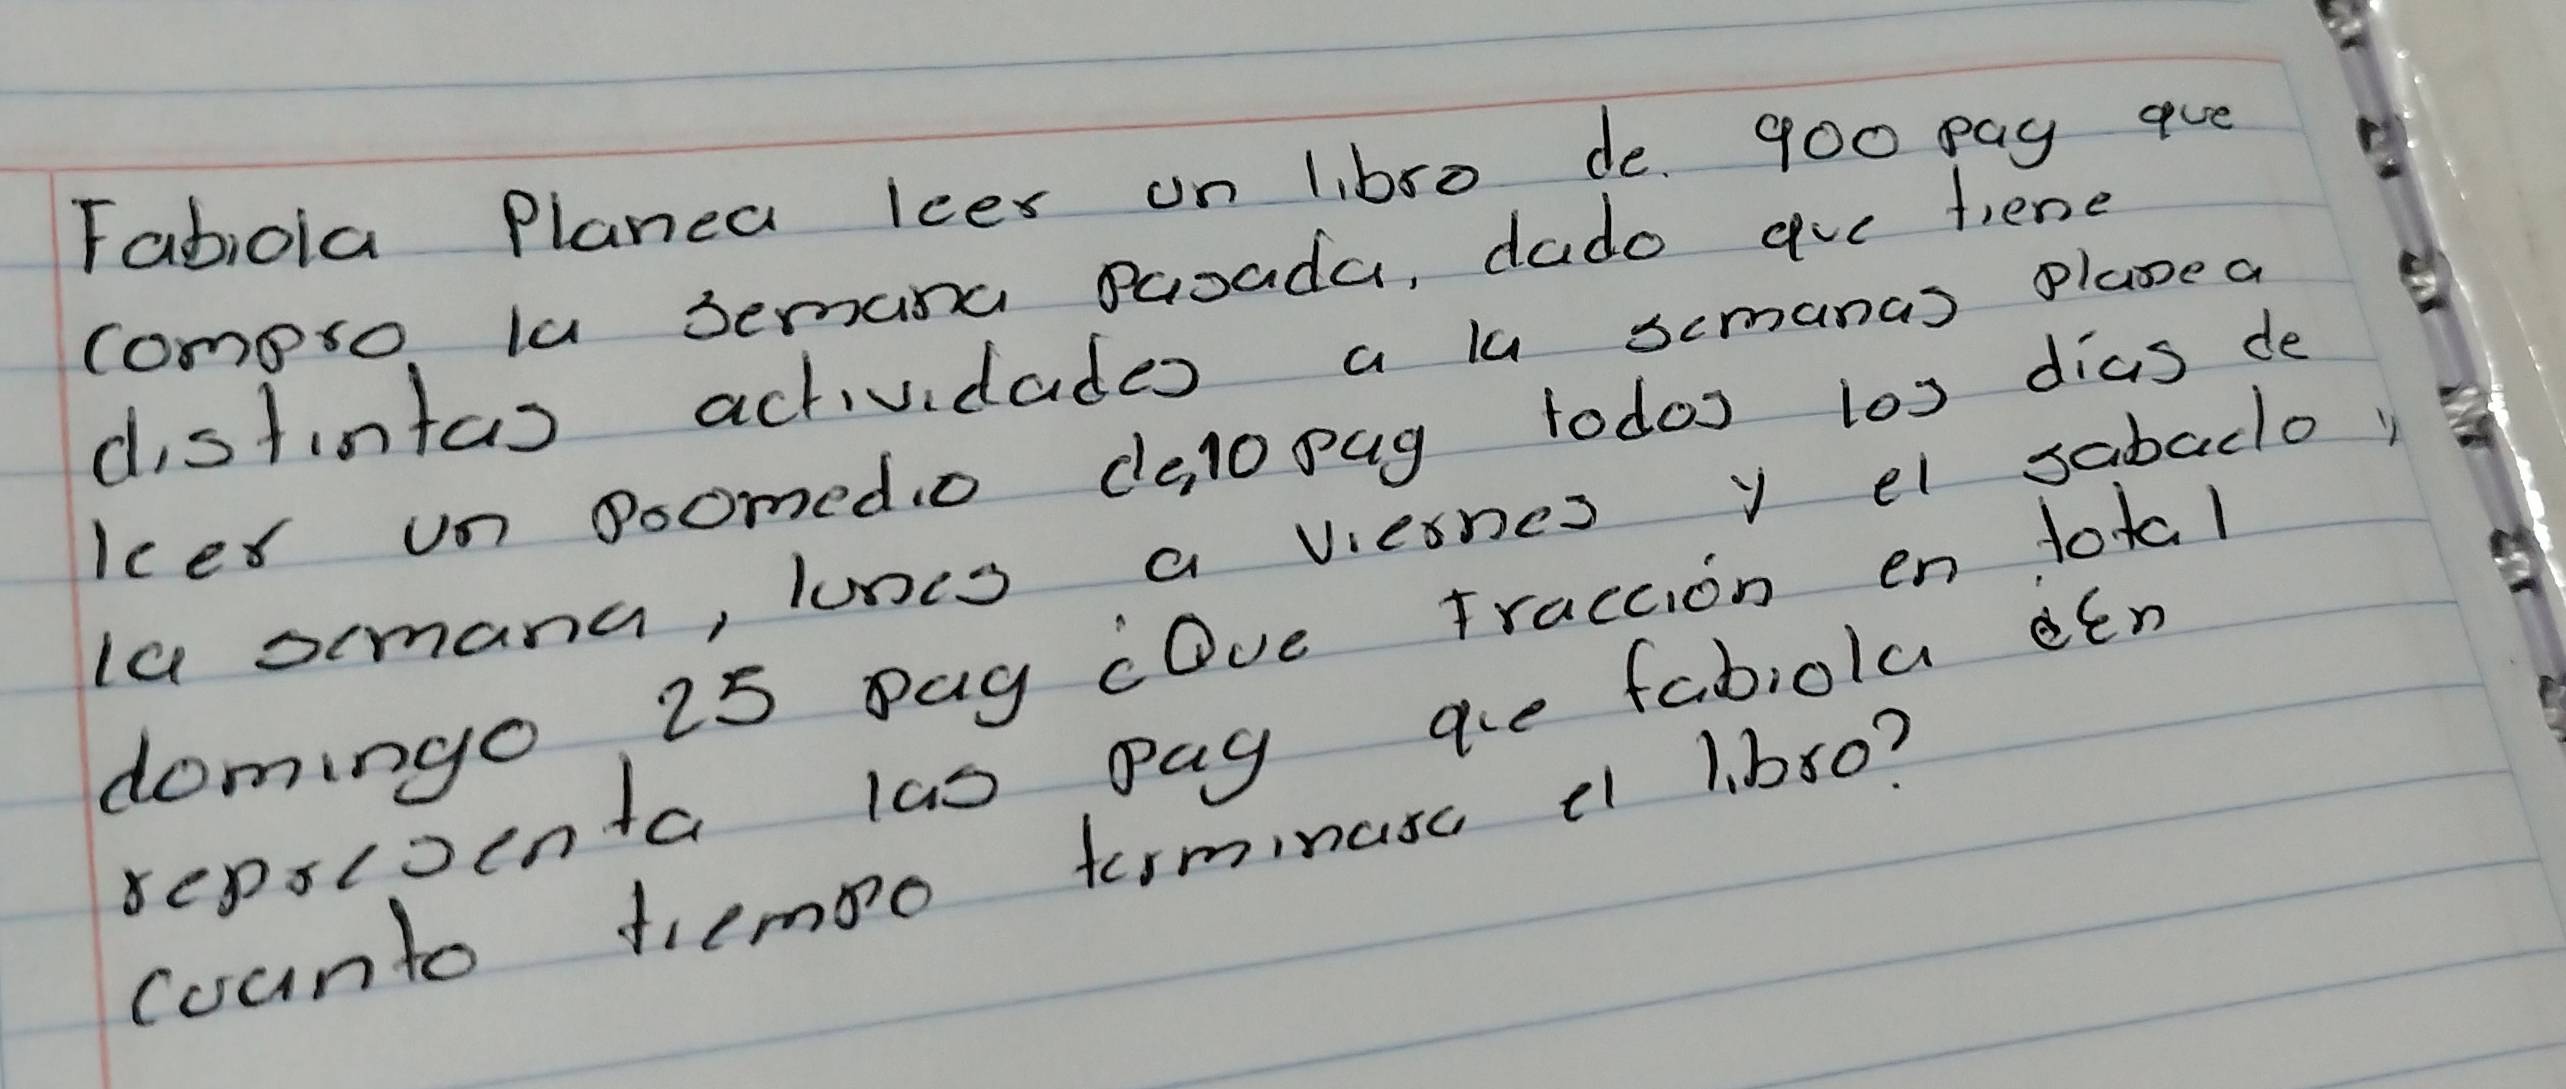 Fabiola Planea leer un libro de. 900 pag que
compro la semana pasada, dado que tiene
distintas actividades a la semanas planea
leer un promedio de 10 pag todos los días de
la semana, lunes a viernes y el sabado y
domingo 25 pag ¿Que fracción en total
representa las pag que fabiola ¿En
cuanto tiempo terminara el libro?